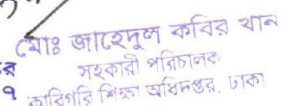 মোঃ জাহেদুল কবির খান
সহকারী পরিচালক
কারিগরি শিক্ষা অধিদপ্তর, ঢাকা